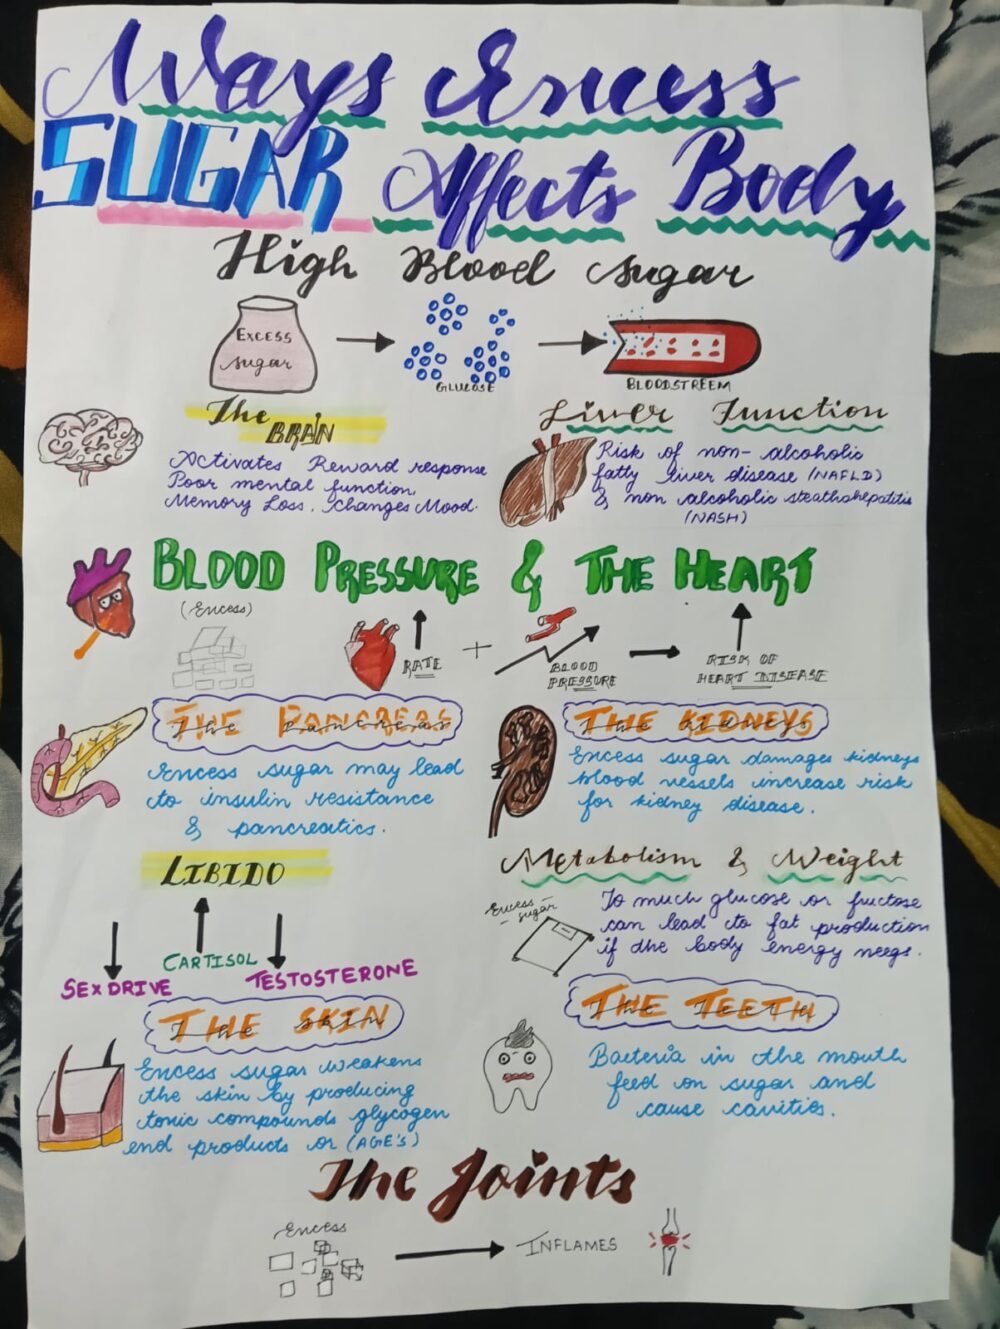 Ways Excess
SUGAR Affects Body
High Blood sugar
EXCESS
sugar
GLUCOSE
BLOODSTREEM
The
BRAIN
Activates Reward response
Poor mental function,
Memory Loss, changes Mood.
Liver Function
Risk of non-alcoholic
fatty liver disease (NAFLD)
& non alcoholic steathohepatitis
(NASH)
BLOOD PRESSURE & THE HEART
(Excess)
RATE
+
BLOOD
PRESSURE
RISK OF
HEART DISEASE
THE PANCREAS
Excess sugar may lead
to insulin resistance
& pancreatics.
THE KIDNEYS
Excess sugar damages kidneys
blood vessels increase risk
for kidney disease.
LIBIDO
SEX DRIVE
CARTISOL
TESTOSTERONE
Metabolism & Weight
Excess
sugar
To much glucose or fructose
can lead to fat production
if the body energy needs.
THE SKIN
Excess sugar weakens
the skin by producing
tonic compounds glycogen
end products or (AGE's)
THE TEETH
Bacteria in the mouth
feed on sugar and
cause cavities.
The Joints
Excess
INFLAMES